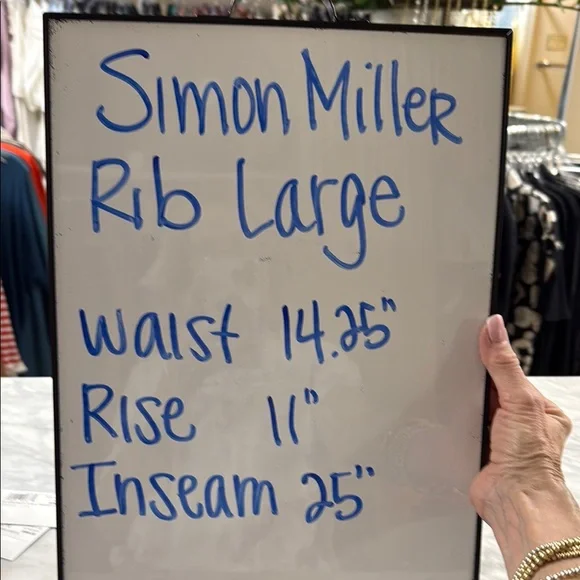 Simon Miller
Rib Large
Waist 14.25"
Rise 11"
Inseam 25"